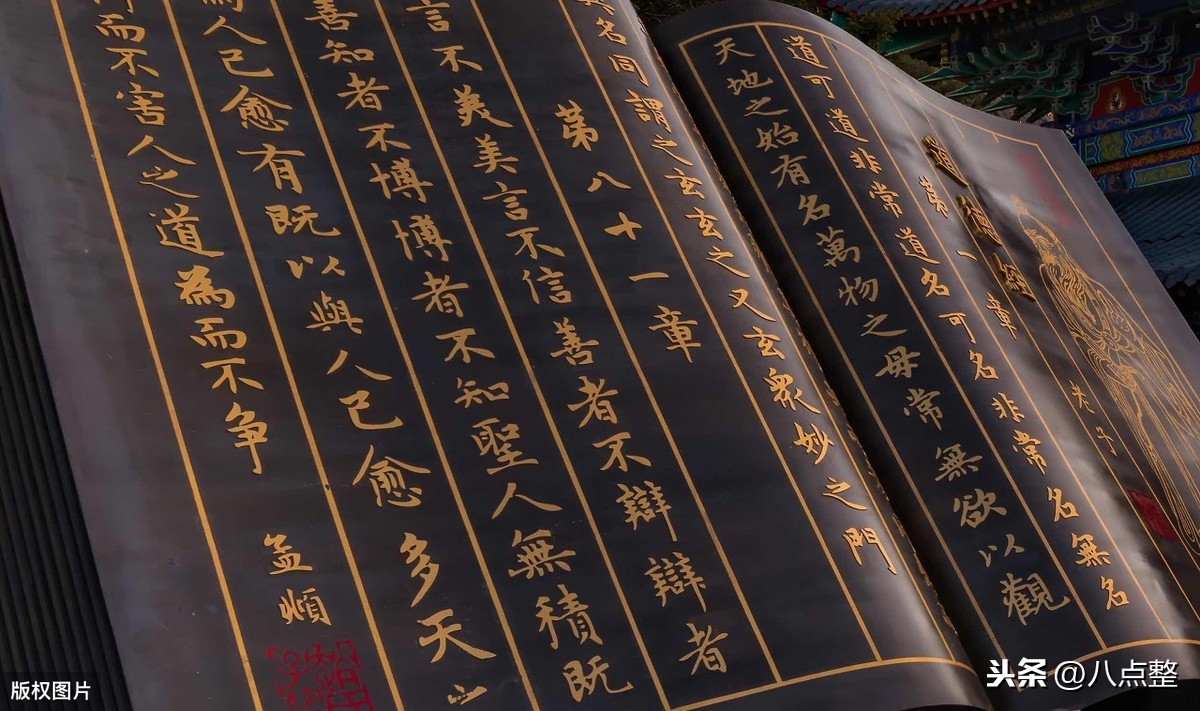 老子
道德經
第一章
道可道非常道名可名非常名無名
天地之始有名萬物之母常無欲以觀
異名同謂之玄玄之又玄眾妙之門
第八十一章
言不美美言不信善者不辯辯者
善知者不博博者不知聖人無積既
為人己愈有既以與人己愈多天之
而不害人之道為而不争
孟頫
版权图片
头条@八点整